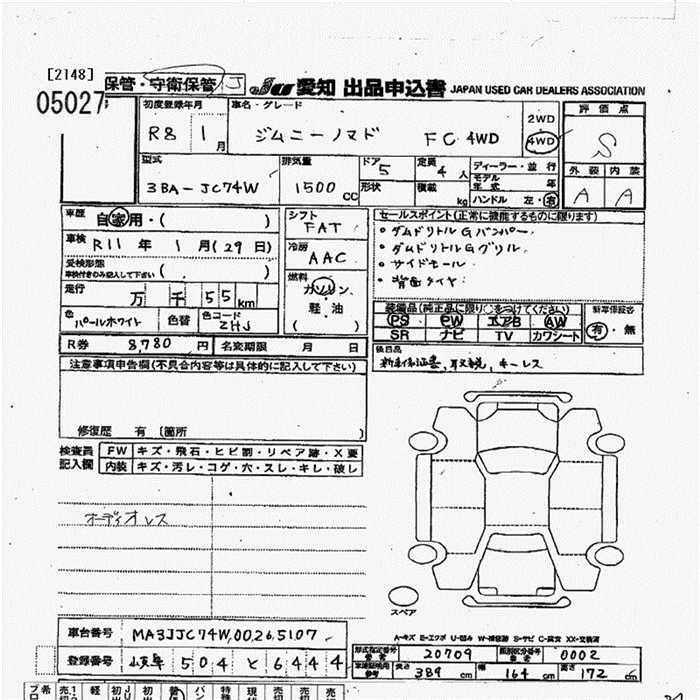 [2148]
保管・守衛保管
05027
JU 愛知 出品申込書 JAPAN USED CAR DEALERS ASSOCIATION
初度登録年月 車名・グレード 評価点
R8 1月 ジムニーノマド FC 4WD
2WD
4WD
S
型式 排気量 ドア 定員 ディーラー・並行 外装 内装
3BA-JC74W 1500cc 5 4人
モデル年式 年
形状 積載 kg ハンドル 左・右
A A
車歴 自家用・( ) シフト セールスポイント(正常に機能するものに限ります)
FAT
・ダムドリトルGバンパー.
車検 R11年1月(29日) 冷房
AAC
・ダムドリトルGグリル.
受検形態
車検付きのみ記入して下さい( )
・サイドモール.
・背面タイヤ.
走行 万 千 55km 燃料
ガソリン・
軽・油
( )
色 パールホワイト 色替 色コード ZHJ
装備品(純正品に限り○をつけてください) 新車保証書
PS PW エアB AW
SR ナビ TV カワシート
有・無
R券 8,780円 名変期限 月 日
後日品
新車保証書、取説、キーレス
注意事項申告欄(不具合内容等は具体的に記入して下さい)
修復歴 有 〔箇所
検査員記入欄
FW キズ・飛石・ヒビ割・リペア跡・X要
内装 キズ・汚レ・コゲ・穴・スレ・キレ・破レ
オーディオレス
スペア
A-キズ E-エクボ U-凹み W-補修跡 S-サビ C-腐食 XX-交換済
車台番号 MA3JJC74W00265107
登録番号 岐阜 504 と 6444
型式指定番号 20709 類別区分番号 0002
長さ 389cm 幅 164cm 高さ 172cm